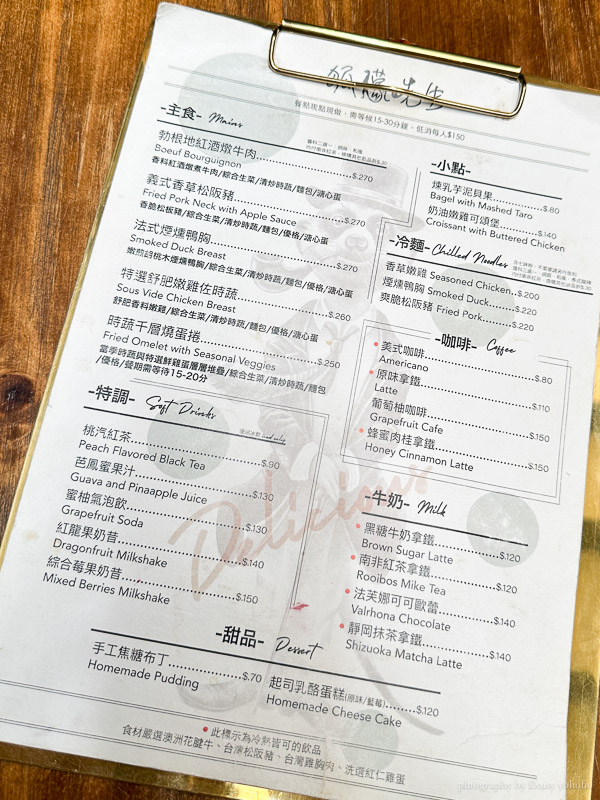 先生
餐點現點現做，需等候15-30分鐘，低消每人$150
-主食- Mains
勃根地紅酒燉牛肉 $.270
Boeuf Bourguignon
香料紅酒燉煮牛肉/綜合生菜/清炒時蔬/麵包/溏心蛋
義式香草松阪豬 $.270
Fried Pork Neck with Apple Sauce
香脆松板豬/綜合生菜/清炒時蔬/麵包/優格/溏心蛋
法式煙燻鴨胸 $.270
Smoked Duck Breast
嫩煎胡桃木煙燻鴨胸/綜合生菜/清炒時蔬/麵包/優格/溏心蛋
特選舒肥嫩雞佐時蔬 $.260
Sous Vide Chicken Breast
舒肥香料嫩雞/綜合生菜/清炒時蔬/麵包/優格/溏心蛋
時蔬千層燒蛋捲 $.250
Fried Omelet with Seasonal Veggies
當季時蔬與特選鮮雞蛋層層堆疊/綜合生菜/清炒時蔬/麵包
/優格/餐期需等待15-20分
-小點-
燻乳芋泥貝果 $.80
Bagel with Mashed Taro
奶油嫩雞可頌堡 $.140
Croissant with Buttered Chicken
-冷麵- Chilled Noodles
香草嫩雞 Seasoned Chicken $.200
煙燻鴨胸 Smoked Duck $.220
爽脆松阪豬 Fried Pork $.220
-咖啡- Coffee
美式咖啡 $.80
Americano
原味拿鐵 $.110
Latte
葡萄柚咖啡 $.150
Grapefruit Cafe
蜂蜜肉桂拿鐵 $.150
Honey Cinnamon Latte
-特調- Soft Drinks
桃汽紅茶 $.90
Peach Flavored Black Tea
芭鳳蜜果汁 $.130
Guava and Pinaapple Juice
蜜柚氣泡飲 $.130
Grapefruit Soda
紅龍果奶昔 $.140
Dragonfruit Milkshake
綜合莓果奶昔 $.150
Mixed Berries Milkshake
Delicious
-牛奶- Milk
黑糖牛奶拿鐵 $.120
Brown Sugar Latte
南非紅茶拿鐵 $.120
Rooibos Mike Tea
法芙娜可可歐蕾 $.140
Valrhona Chocolate
靜岡抹茶拿鐵 $.140
Shizuoka Matcha Latte
-甜品- Dessert
手工焦糖布丁 $.70
Homemade Pudding
起司乳酪蛋糕(原味/藍莓) $.120
Homemade Cheese Cake
此標示為冷熱皆可的飲品
食材嚴選澳洲花腱牛、台灣松阪豬、台灣雞胸肉、洗選紅仁雞蛋